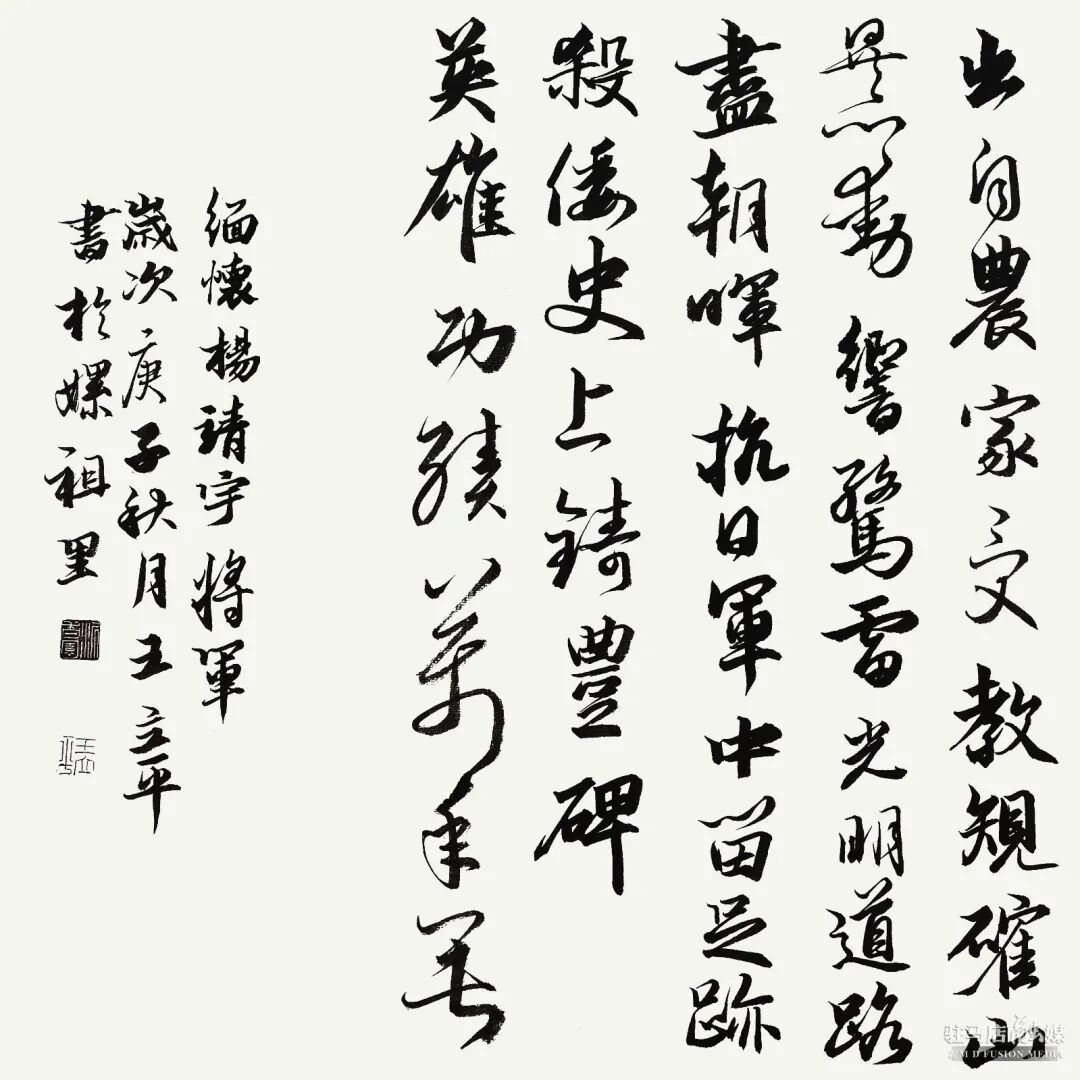 出自農家受教規確山
暴動響驚雷光明道路
盡朝暉抗日軍中留足跡
殺倭史上鑄豐碑
英雄功績萬年垂
緬懷楊靖宇將軍
歲次庚子秋月王立平
書於嫘祖里
驻马店融媒
ZMD FUSION MEDIA